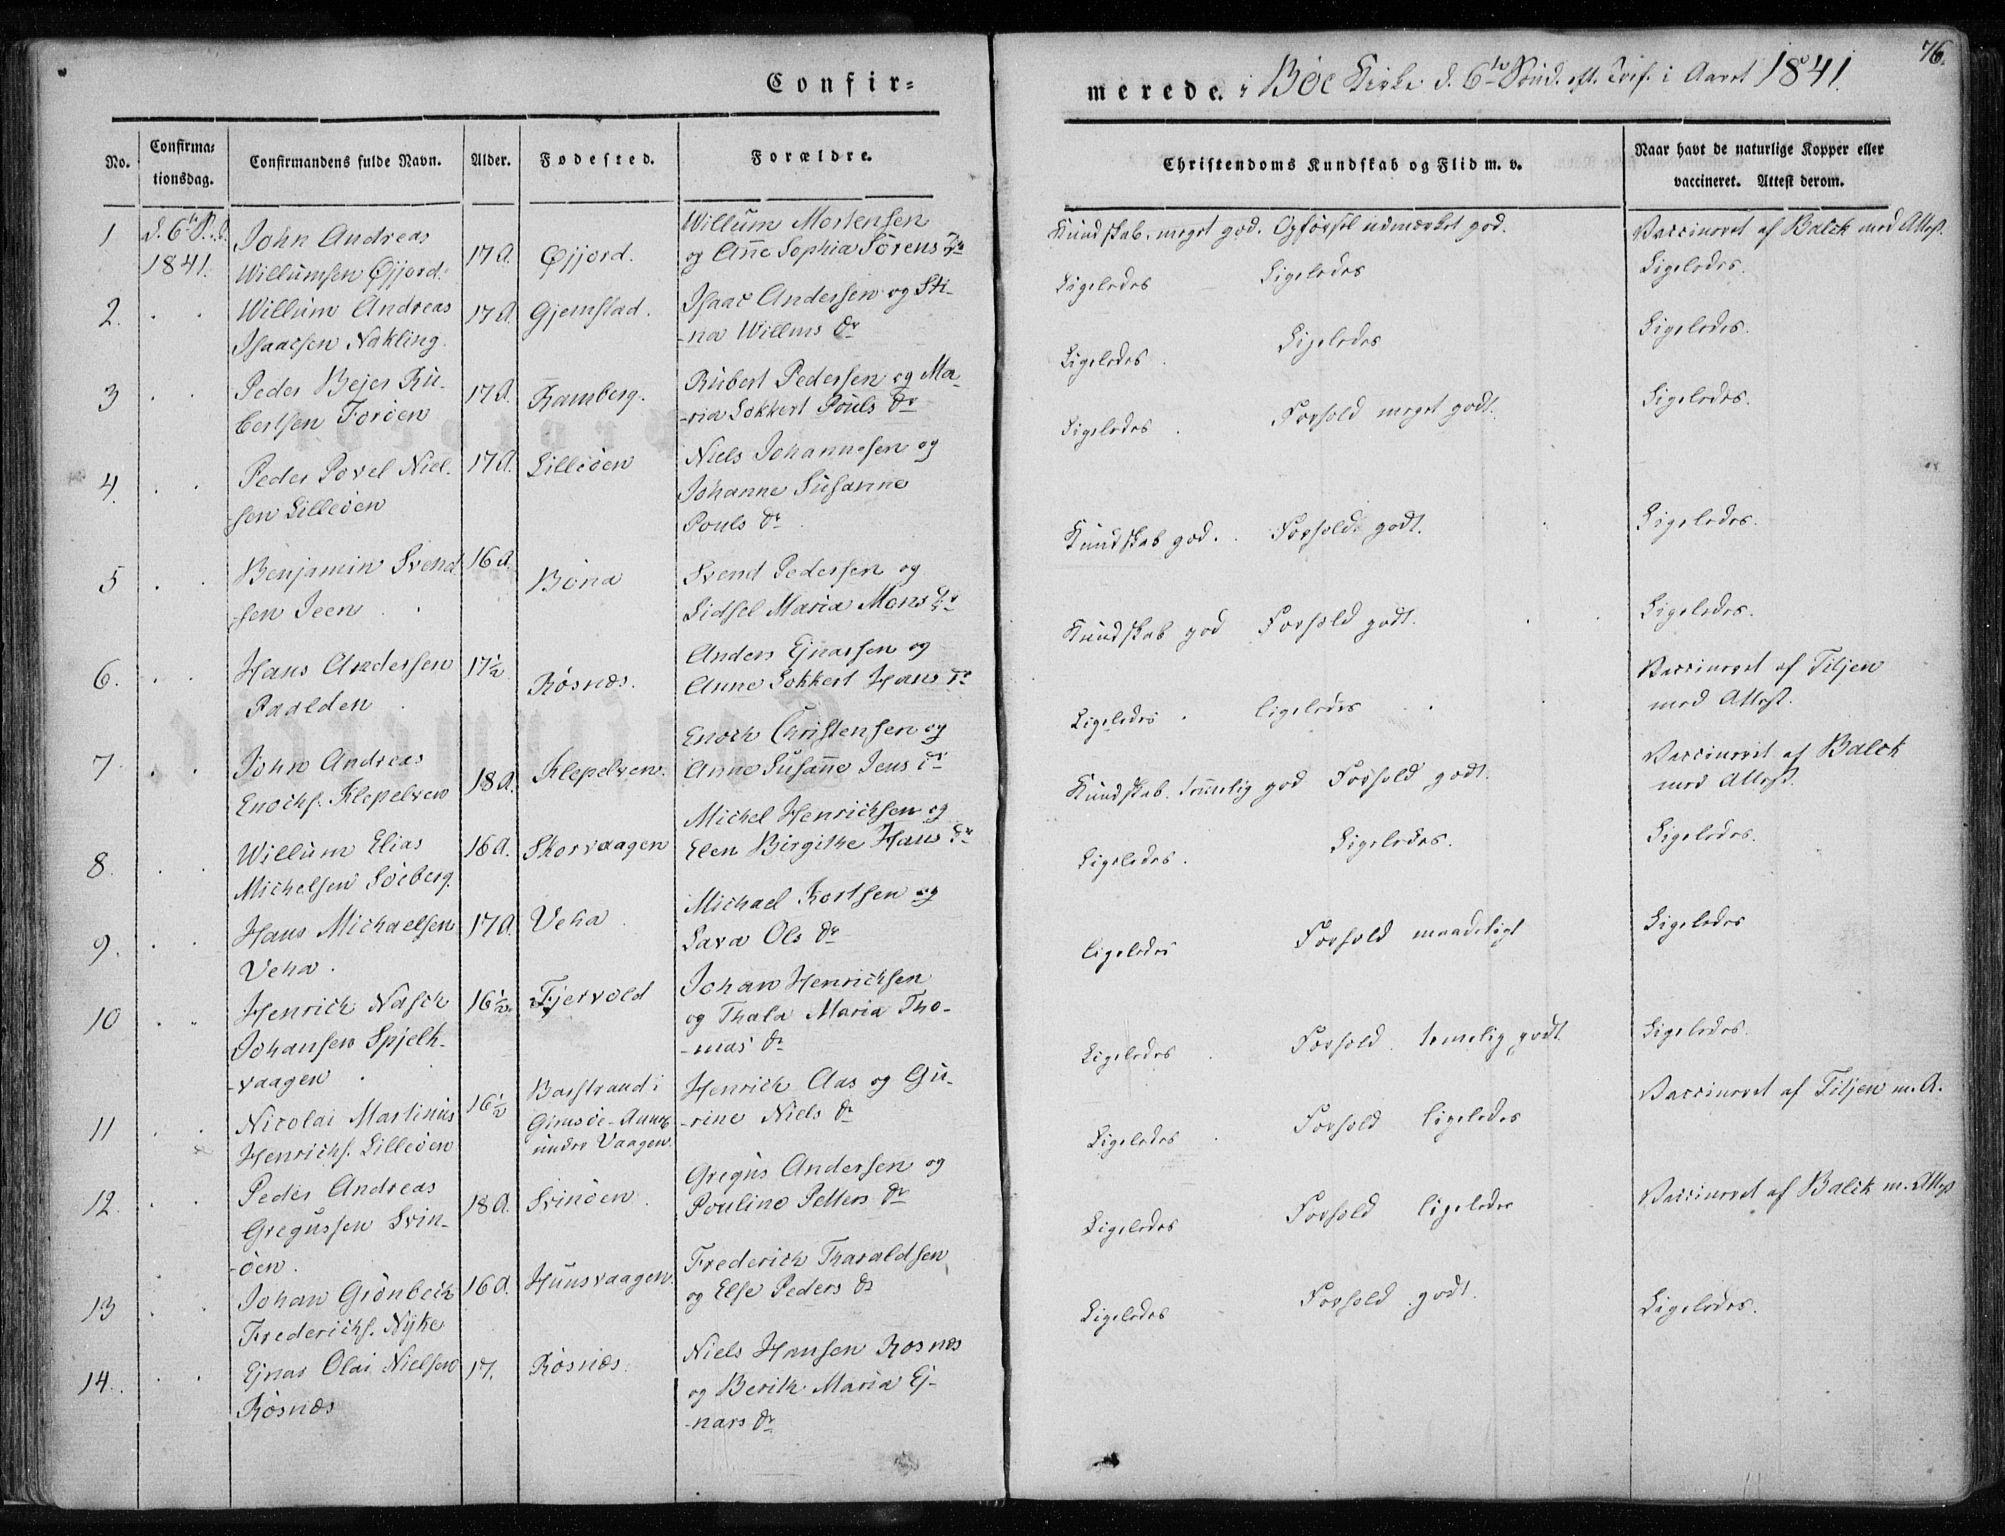 76.
Confir=
merede. i Böe Kirke d. 6te Sønd. eft. Tref. i Aaret 1841.
No.
Confirma=
tionsdag.
Confirmandens fulde Navn.
Alder.
Fødested.
Forældre.
Christendoms Kundskab og Flid m. v.
Naar havt de naturlige Kopper eller
vaccineret. Attest derom.
1 d. 6te
1841.
John Andreas
Willumsen Øjjord.
17 A. Øjjord.
Willum Mortensen
og Anne Sophia Sörens Dr
Kundskab meget god. Opförsel udmærket god.
Vaccineret af Balck med Attest.
2.
Willum Andreas
Isaacsen Nøkling
17 A Gjemstad.
Isaac Andersen og Sti-
-na Willums Dr
Ligeledes Ligeledes
Ligeledes.
3
Peder Bejer Ru-
bertsen Foröen
17 A. Ramberg.
Rubert Pedersen og Ma-
-ria Lokkert Pouls Dr
Ligeledes Ligeledes
Ligeledes.
4.
Peder Povel Niel-
sen Lilleöen
17 A. Lilleöen
Niels Johannesen og
Johanne Susanne
Pouls Dr
Ligeledes Forhold meget godt.
Ligeledes.
5
Benjamin Svend
sen Jeen
16 A. Böna
Svend Pedersen og
Sidsel Maria Mons Dr
Kundskab god. Forhold godt.
Ligeledes.
6.
Hans Andersen
Paalden
17½ Rösnæs.
Anders Ejnarsen og
Anne Lokkert Hans Dr
Kundskab god Forhold godt.
Ligeledes.
7.
John Andreas
Enochs. Klepelven
18 A. Klepelven.
Enoch Christensen og
Anne Susanne Jens Dr
Ligeledes. ligeledes
Vaccineret af Tiljen
med Attest.
8.
Willum Elias
Michelsen Söeberg.
16 A. Skorvaagen
Michel Henrichsen og
Elen Birgithe Hans Dr
Kundskab temmelig god Forhold godt.
Vaccineret af Balck
med Attest.
9.
Hans Michaelsen
Veha.
17 A. Veha.
Michael Kortsen og
Sara Ols Dr
Ligeledes. Ligeledes.
Ligeledes.
10
Henrich Nasch
Johansen Spjelk-
-vaagen
16½. Fjervold
Johan Henrichsen
og Thala Maria Tho-
-mas Dr
ligeledes Forhold maadeligt
Ligeledes
11
Nicolai Martinus
Henrichs. Lilleöen
16½
Barstrand i
Gimsöe-Annex
under Vaagen.
Henrich Aas og Gu-
-rine Niels Dr
Ligeledes Forhold temelig godt.
Ligeledes.
12.
Peder Andreas
Gregussen Svin-
-öen.
18 A. Svinöen.
Gregus Andersen og
Pouline Petters Dr
Ligeledes. Forhold ligeledes
Vaccineret af Tiljen m. A.
13
Johan Grönbech
Frederichs. Nyke
16 A. Huusvaagen.
Frederich Tharaldsen
og Else Peders Dr
Ligeledes Forhold ligeledes
Vaccineret af Balck m. Attest
14.
Ejnar Olai Nielsen
Rösnæs
17. Rösnæs.
Niels Hansen Rosnæs
og Berith Maria Ej-
-nars Dr
Ligeledes Forhold godt.
Ligeledes.